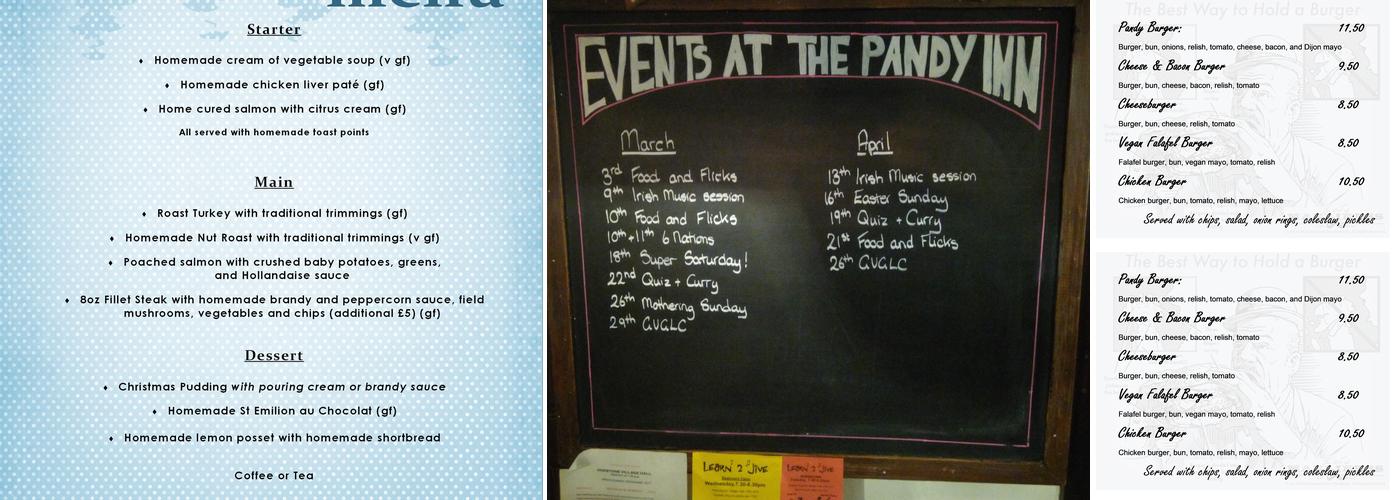 menu
Starter
Homemade cream of vegetable soup (v gf)
Homemade chicken liver paté (gf)
Home cured salmon with citrus cream (gf)
All served with homemade toast points
Main
Roast Turkey with traditional trimmings (gf)
Homemade Nut Roast with traditional trimmings (v gf)
Poached salmon with crushed baby potatoes, greens,
and Hollandaise sauce
8oz Fillet Steak with homemade brandy and peppercorn sauce, field
mushrooms, vegetables and chips (additional £5) (gf)
Dessert
Christmas Pudding with pouring cream or brandy sauce
Homemade St Emilion au Chocolat (gf)
Homemade lemon posset with homemade shortbread
Coffee or Tea
EVENTS AT THE PANDY INN
March
3rd Food and Flicks
9th Irish Music session
10th Food and Flicks
10th + 11th 6 Nations
18th Super Saturday!
22nd Quiz + Curry
26th Mothering Sunday
29th GVGLC
April
13th Irish Music session
16th Easter Sunday
19th Quiz + Curry
21st Food and Flicks
26th GVGLC
LEARN 2 JIVE
Wednesday, 7.30-8.30pm
LEARN 2 JIVE
The Best Way to Hold a Burger
Pandy Burger: 11.50
Burger, bun, onions, relish, tomato, cheese, bacon, and Dijon mayo
Cheese & Bacon Burger 9.50
Burger, bun, cheese, bacon, relish, tomato
Cheeseburger 8.50
Burger, bun, cheese, relish, tomato
Vegan Falafel Burger 8.50
Falafel burger, bun, vegan mayo, tomato, relish
Chicken Burger 10.50
Chicken burger, bun, tomato, relish, mayo, lettuce
Served with chips, salad, onion rings, coleslaw, pickles
The Best Way to Hold a Burger
Pandy Burger: 11.50
Burger, bun, onions, relish, tomato, cheese, bacon, and Dijon mayo
Cheese & Bacon Burger 9.50
Burger, bun, cheese, bacon, relish, tomato
Cheeseburger 8.50
Burger, bun, cheese, relish, tomato
Vegan Falafel Burger 8.50
Falafel burger, bun, vegan mayo, tomato, relish
Chicken Burger 10.50
Chicken burger, bun, tomato, relish, mayo, lettuce
Served with chips, salad, onion rings, coleslaw, pickles